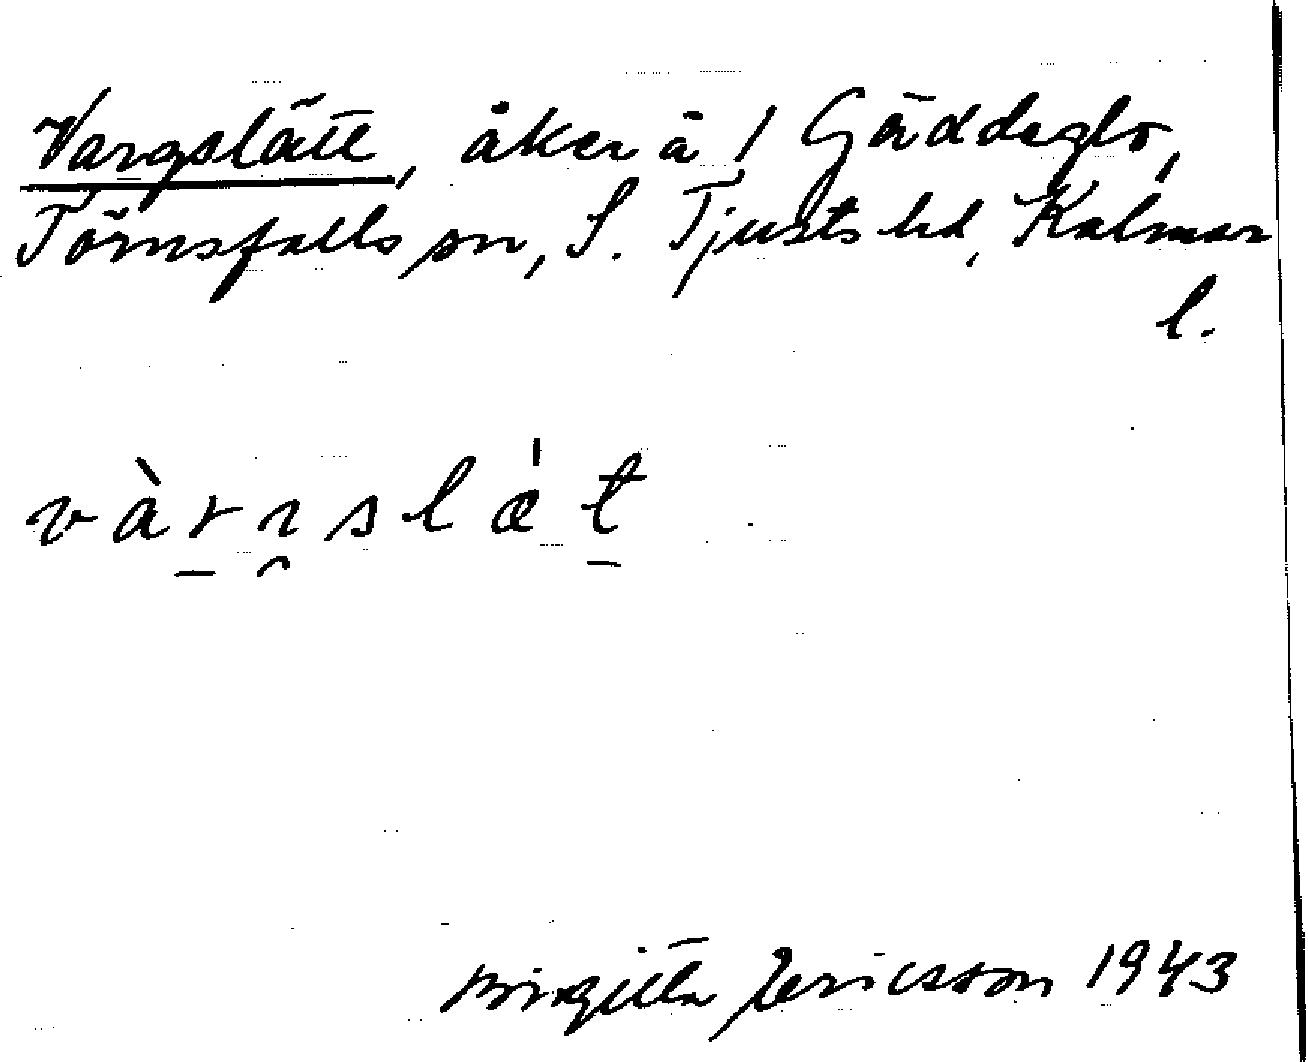 Vargslätt, åker å / Gäddeglo,
Törnsfalls sn, S. Tjusts hd, Kalmar
l.
vàrɿslǽt
Birgitta Ericsson 1943